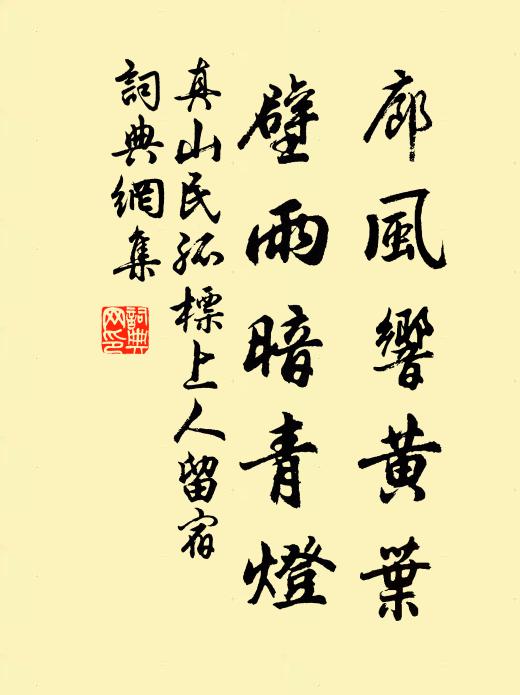 廊風響黄葉
壁雨暗青燈
真山民孤標上人留宿
詞典網集
詞典
网印